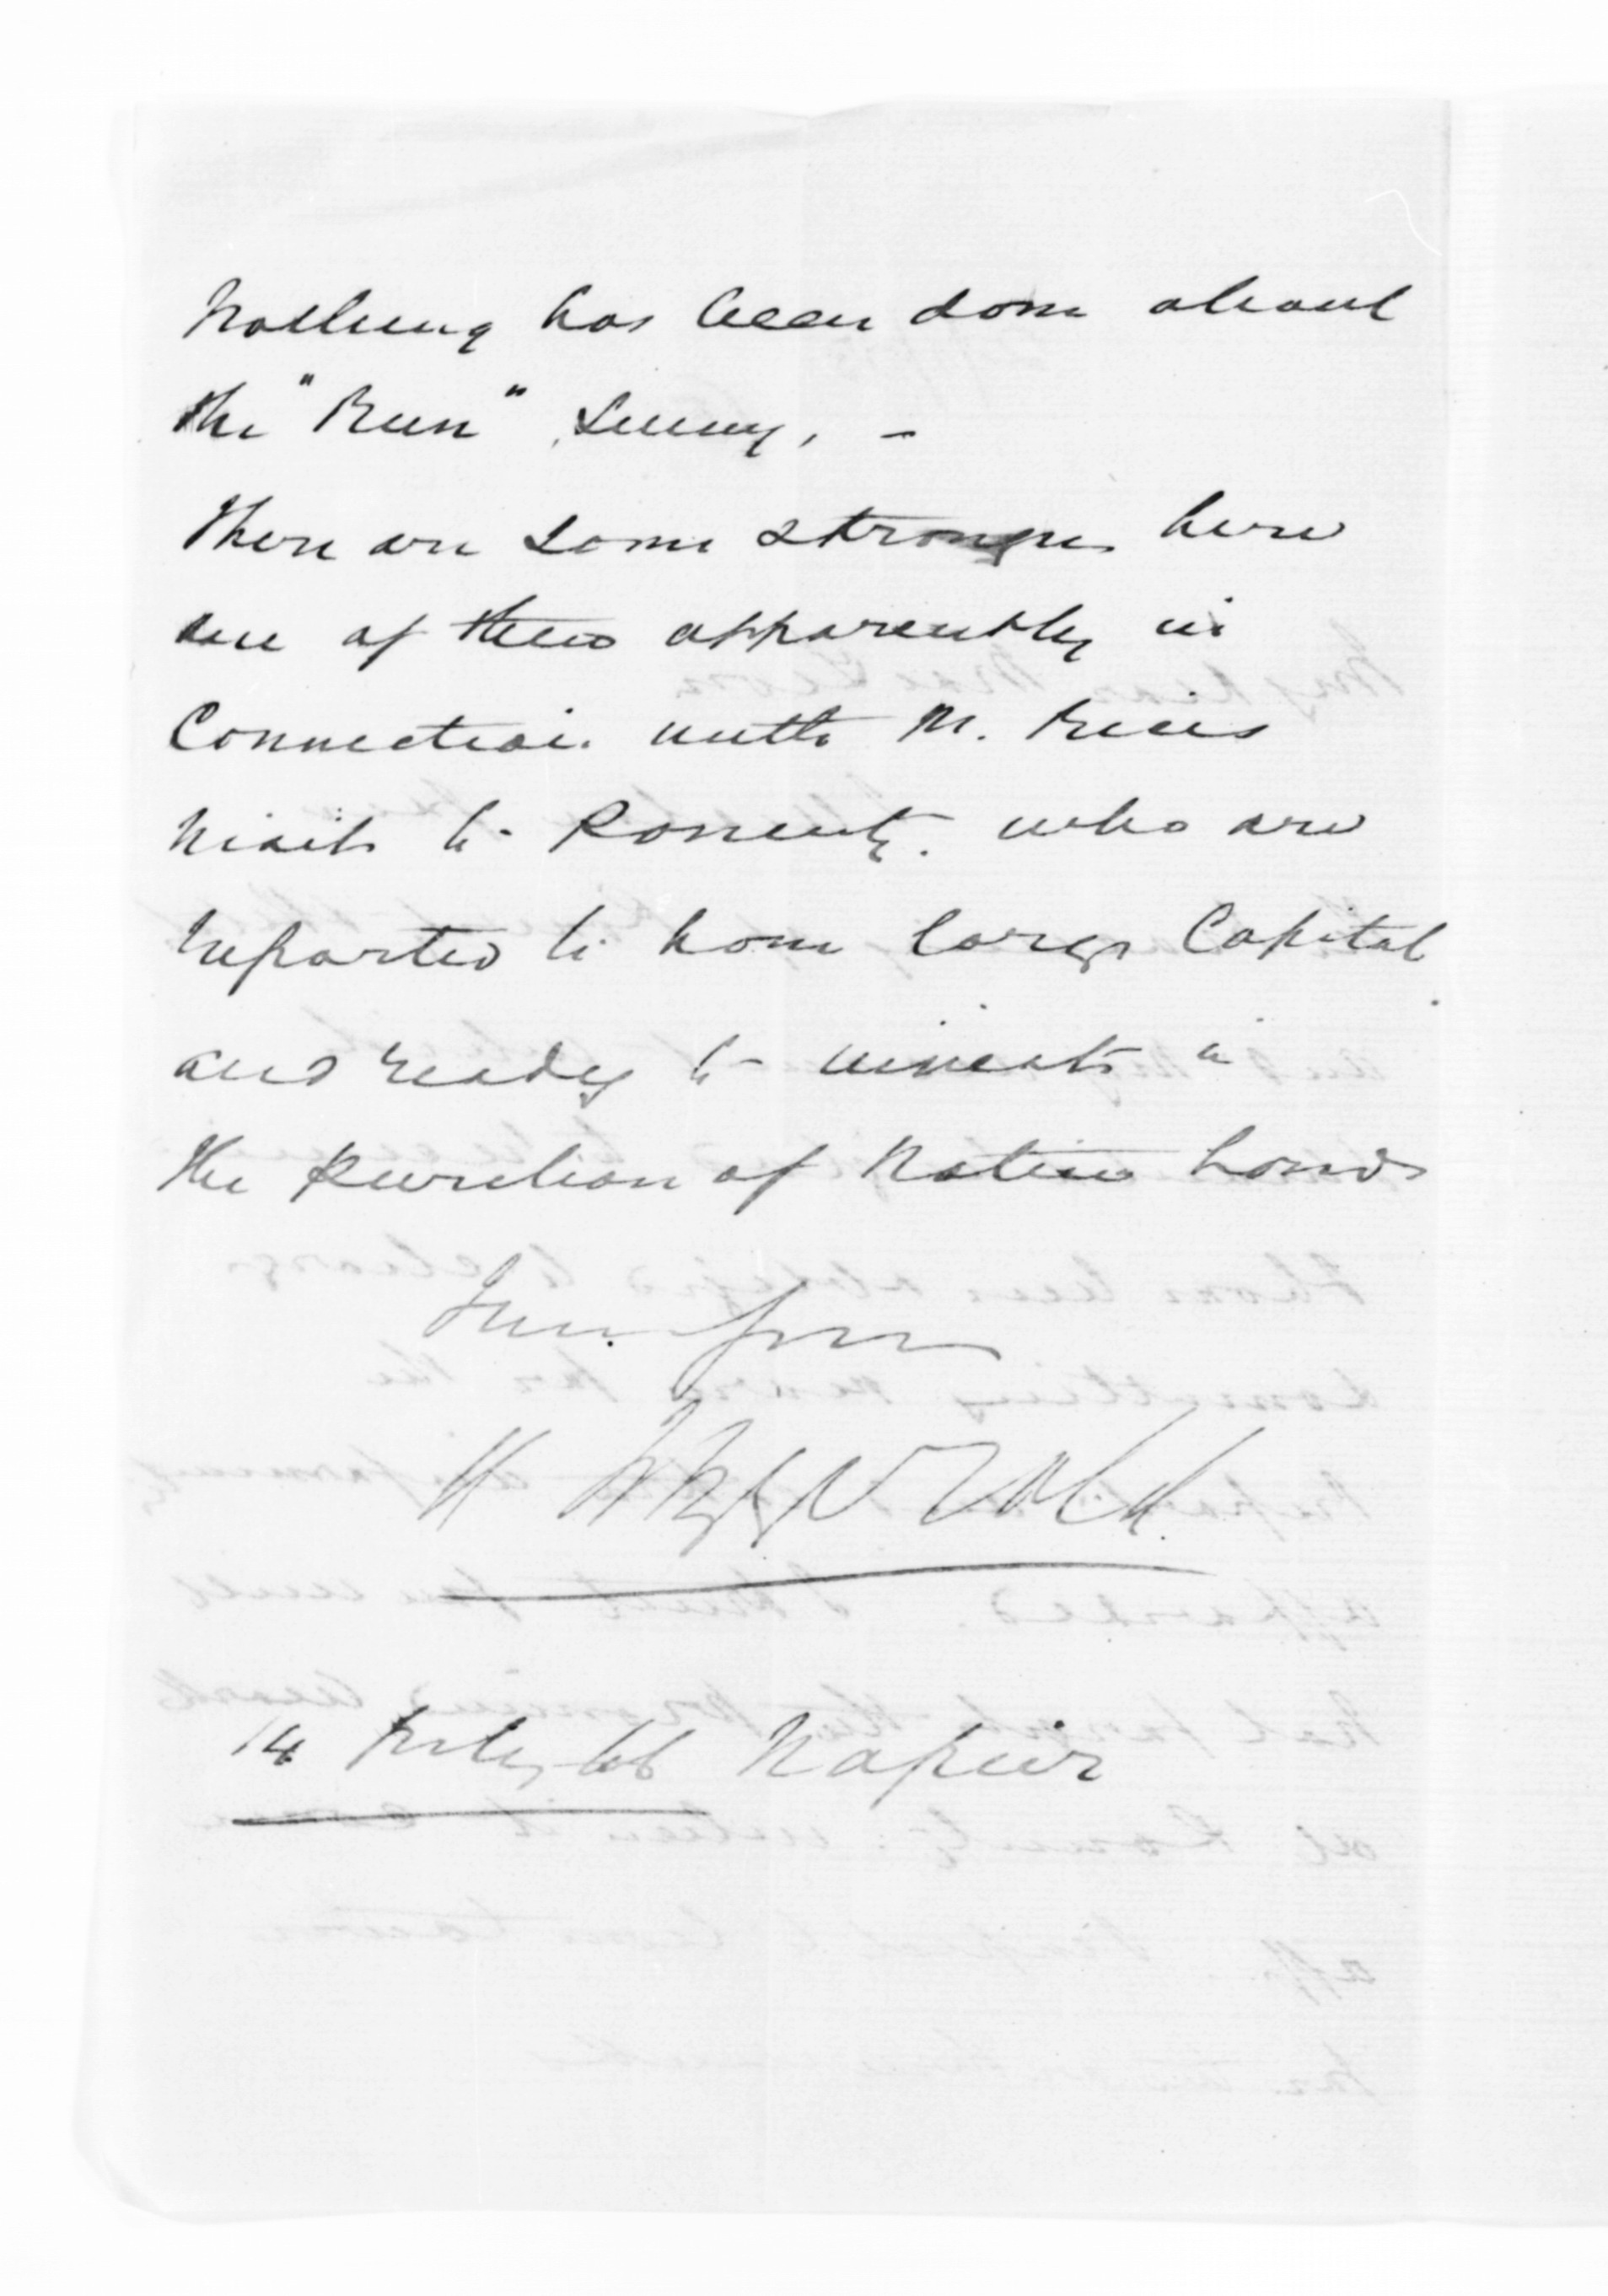 Nothing has been done about
the "Run" Survey. -
There are some strangers here
one of them apparently in
Connection with M.
visit to who are
reported to have large Capital
and ready to invest in
the of Native Lands
yours
14 66 Napier